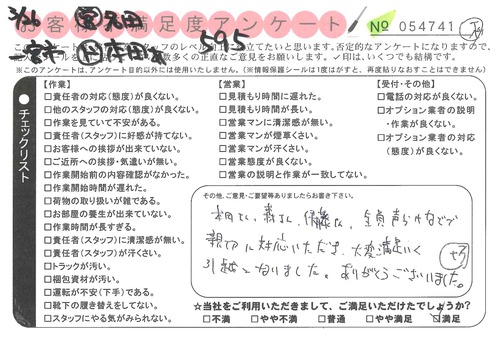 3/26
お客様満足度アンケート
No 054741
595
※このアンケートは、アンケート目的以外には使用いたしません。(※情報保護シールは1度はがすと、再度貼りなおすことはできません)
チェックリスト
【作業】
□責任者の対応(態度)が良くない。
□他のスタッフの対応(態度)が良くない。
□作業を見ていて不安がある。
□責任者(スタッフ)に好感が持てない。
□お客様への挨拶が出来ていない。
□ご近所への挨拶・気遣いが無い。
□作業開始前の内容確認がなかった。
□作業開始時間が遅れた。
□荷物の取り扱いが雑である。
□お部屋の養生が出来ていない。
□作業時間が長すぎる。
□責任者(スタッフ)に清潔感が無い。
□責任者(スタッフ)が汗くさい。
□トラックが汚い。
□梱包資材が汚い。
□運転が不安(下手)である。
□靴下の履き替えをしてない。
□スタッフにやる気がみられない。
【営業】
□見積もり時間に遅れた。
□見積もり時間が長い。
□営業マンに清潔感が無い。
□営業マンが煙草くさい。
□営業マンが汗くさい。
□営業態度が良くない。
□営業の説明と作業が一致してない。
【受付・その他】
□電話の対応が良くない。
□オプション業者の説明
・作業が良くない。
□オプション業者の対応
(態度)が良くない。
その他、ご意見・ご要望等ありましたらお書き下さい。
親切に対応いただき、大変満足いく
引越しと
なりました。ありがとうございました。
☆当社をご利用いただきまして、ご満足いただけたでしょうか?
□不満 □やや不満 □普通 □やや満足 □満足